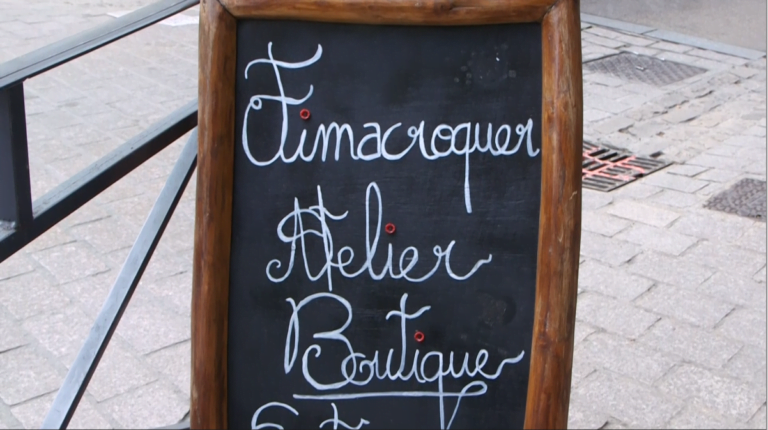 Fimacroquer
Atelier
Boutique